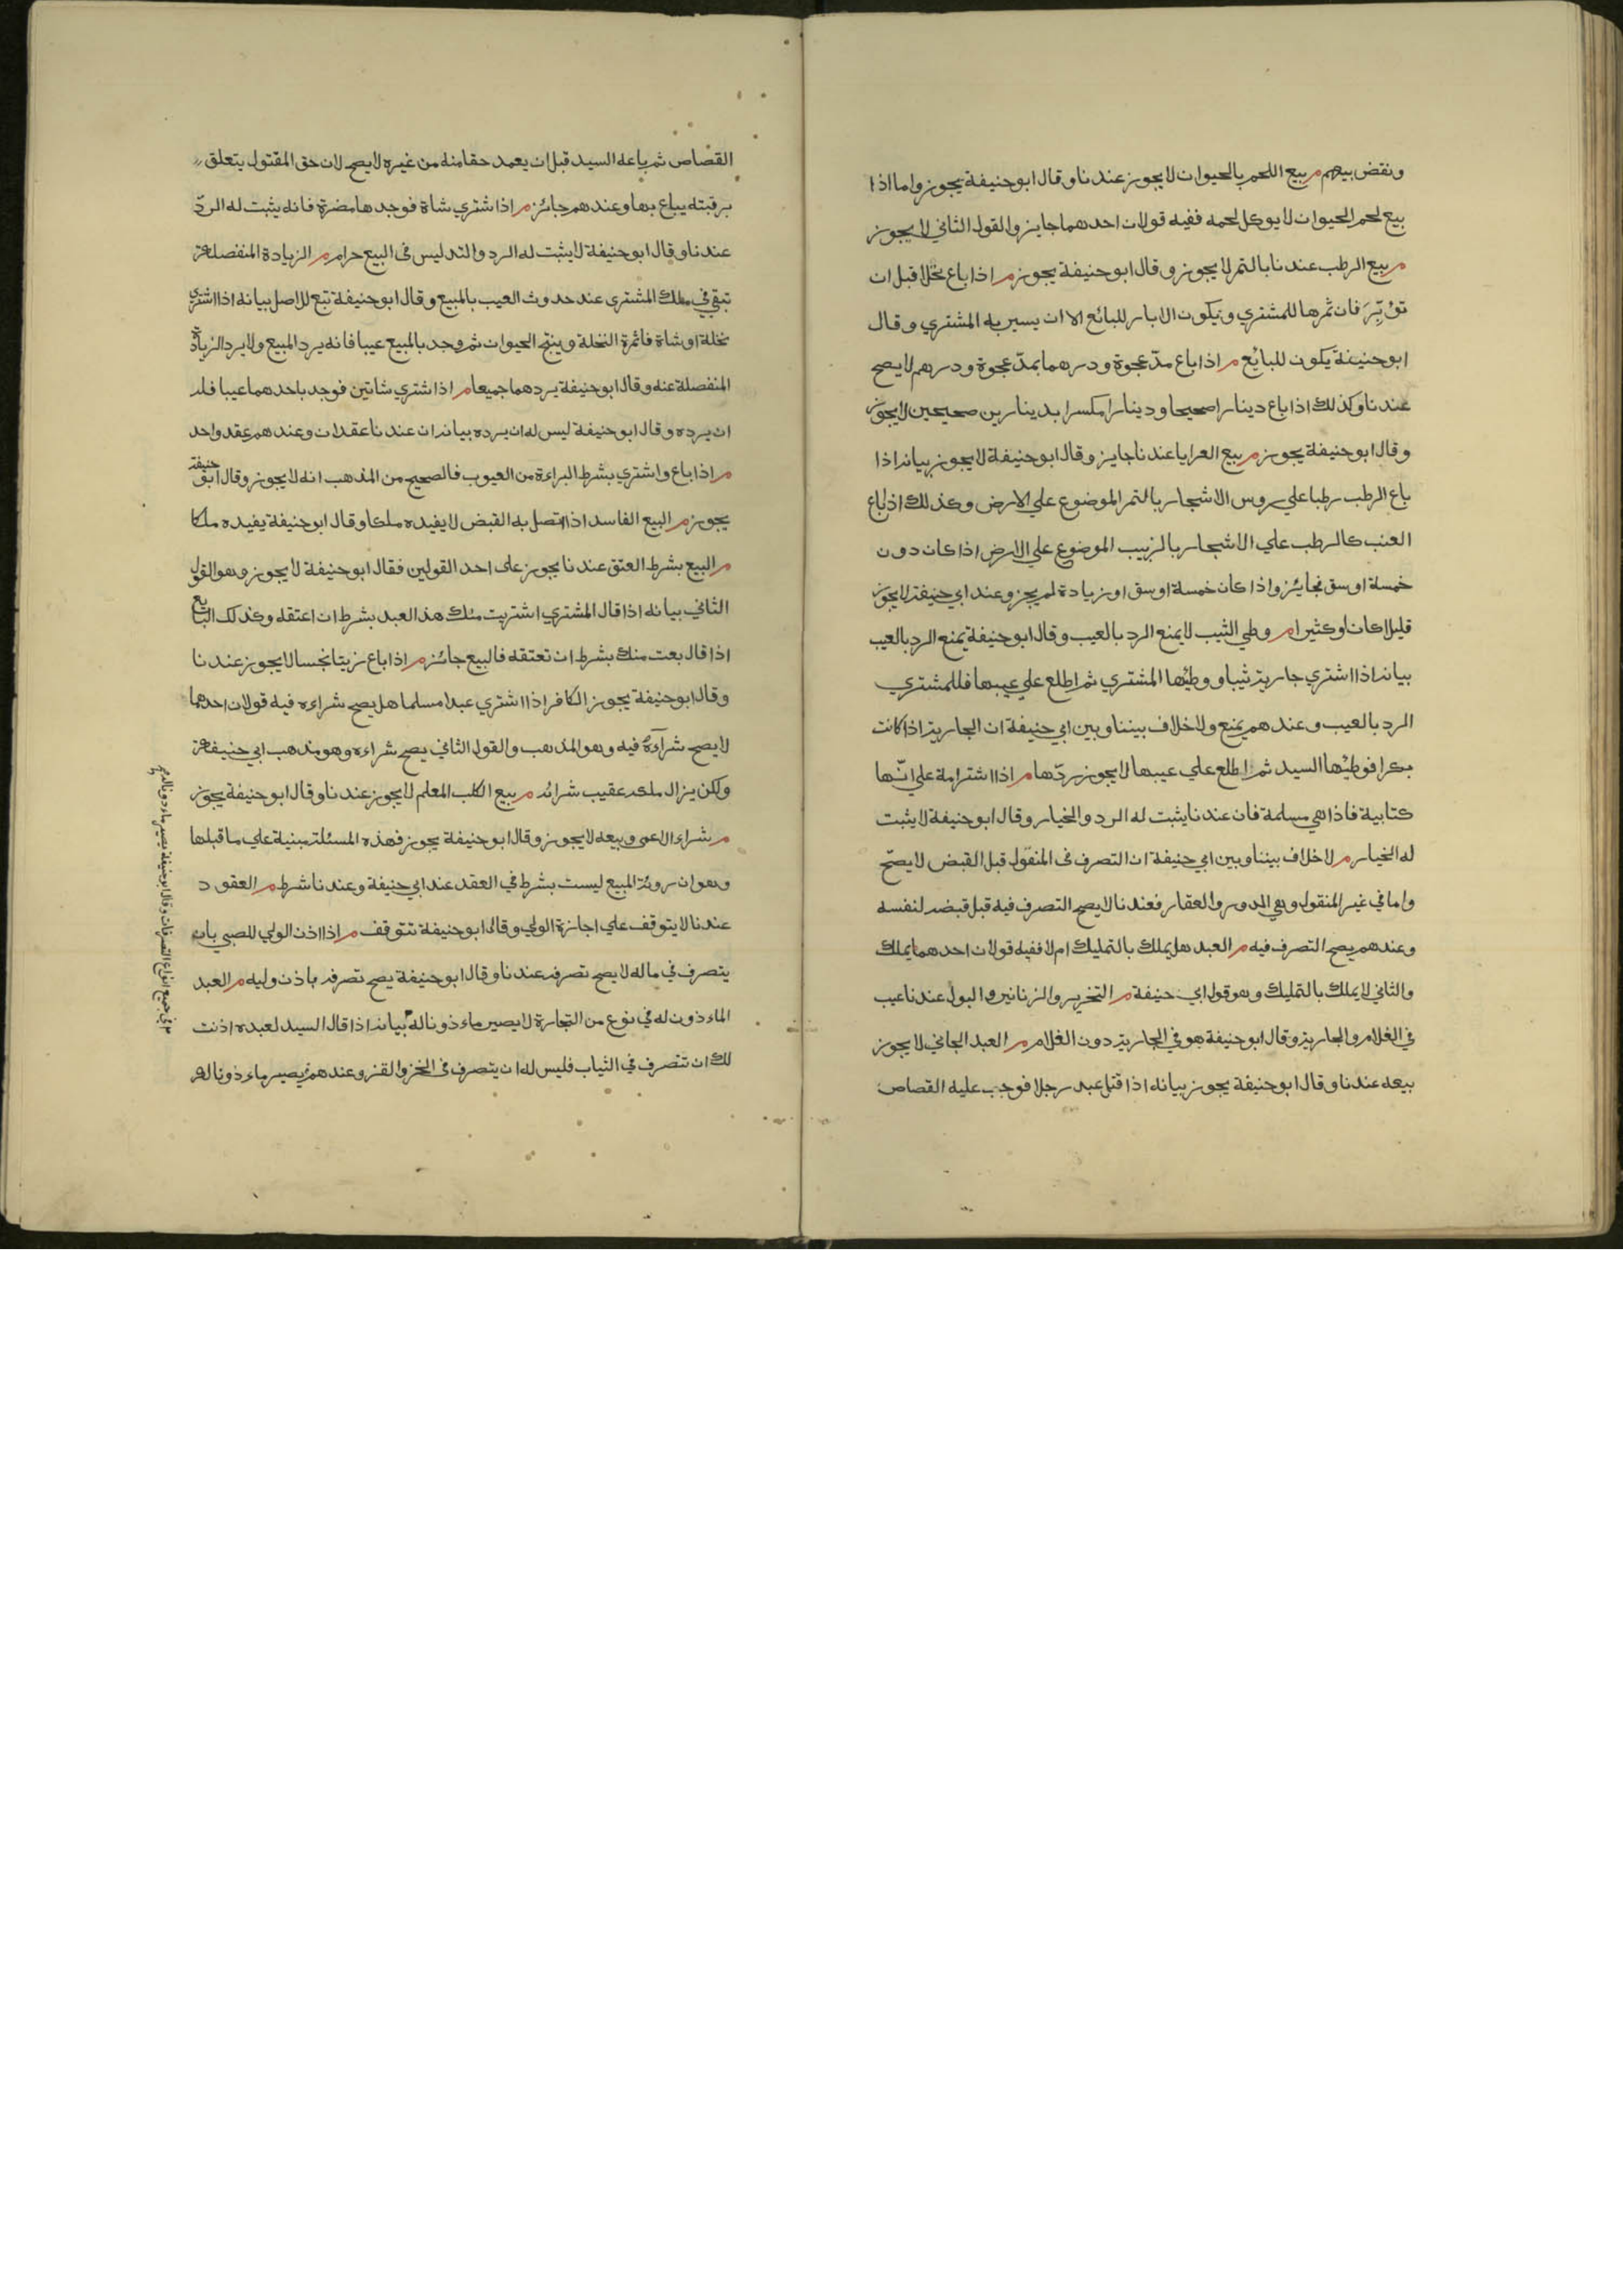 ونقض بيعهم م بيع اللحم بالحيوان لا يجوز عندنا وقال ابو حنيفة يجوز واما اذا
بيع لحم الحيوان لا يوكل لحمه ففيه قولان احدهما جايز والقول الثاني لا يجوز
م بيع الرطب عندنا بالتمر لا يجوز وقال ابو حنيفة يجوز م اذا باع نخلا قبل ان
تؤبّرَ فان ثمرها للمشتري ويكون الابار للبائع الا ان يسير به المشتري وقال
ابو حنيفة يكون للبائع م اذا باع مدّ عجوة ودرهما بمدّ عجوة ودرهم لا يصح
عندنا وكذلك اذا باع دينارا صحيحا ودينارا مكسرا بدينارين صحيحين لا يجوز
وقال ابو حنيفة يجوز م بيع العرايا عندنا جايز وقال ابو حنيفة لا يجوز بيانه اذا
باع الرطب رطبا على روس الاشجار بالتمر الموضوع علي الارض وكذلك اذا باع
العنب كالرطب علي الاشجار بالزبيب الموضوع علي الارض اذا كان دون
خمسة اوسق فجائز واذا كان خمسة اوسق او زيادة لم يجز وعند ابي حنيفة لا يجوز
قليلا كان او كثيرا م وطي الثيب لا يمنع الرد بالعيب وقال ابو حنيفة يمنع الرد بالعيب
بيانه اذا اشتري جارية ثيبا ووطئها المشتري ثم اطلع علي عيبها فللمشتري
الرد بالعيب وعندهم يمنع ولا خلاف بيننا وبين ابي حنيفة ان الجارية اذا كانت
بكرا فوطئها السيد ثم اطلع علي عيبها لا يجوز ردّها م اذا اشترامة علي انّها
كتابية فاذا هي مسلمة فان عندنا يثبت له الرد والخيار وقال ابو حنيفة لا يثبت
له الخيار م لا خلاف بيننا وبين ابي حنيفة ان التصرف في المنقول قبل القبض لا يصحّ
واما في غير المنقول وهي الدور والعقار فعندنا لا يصح التصرف فيه قبل قبضه لنفسه
وعندهم يصح التصرف فيه م العبد هل يملك بالتمليك ام لا ففيه قولان احدهما يملك
والثاني لا يملك بالتمليك وهو قول ابي حنيفة م التخرير والزنانير والبول عندنا عيب
في الغلام والجارية وقال ابو حنيفة هو في الجارية دون الغلام م العبد الجاني لا يجوز
بيعه عندنا وقال ابو حنيفة يجوز بيانه اذا قتل عبد رجلا فوجب عليه القصاص
القصاص ثم باعه السيد قبل ان يعمد حقا منه من غيره لا يصح لان حق المقتول يتعلق
برقبته يباع بها وعندهم جائز م اذا شتري شاة فوجدها مضرة فانه يثبت له الردّ
عندنا وقال ابو حنيفة لا يثبت له الرد والتدليس في البيع حرام م الزيادة المنفصلة
تبقي في ملك المشتري عند حدوث العيب بالمبيع وقال ابو حنيفة تبع للاصل بيانه اذا اشتري
نخلة او شاة فاثمرة النخلة وينتج الحيوان ثم وجد بالمبيع عيبا فانه يرد المبيع ولا يرد الزيادة
المنفصلة عنه وقال ابو حنيفة يردهما جميعا م اذا شتري شاتين فوجد باحدهما عيبا فله
ان يرده وقال ابو حنيفة ليس له ان يرده بيانه ان عندنا عقدان وعندهم عقد واحد
م اذا باع واشتري بشرط البراءة من العيوب فالصحيح من المذهب انه لا يجوز وقال ابو حنيفة
يجوز م البيع الفاسد اذا اتصل به القبض لا يفيده ملكا وقال ابو حنيفة يفيده ملكا
م البيع بشرط العتق عندنا يجوز على احد القولين فقال ابو حنيفة لا يجوز وهو القول
الثاني بيانه اذا قال المشتري اشتريت منك هذا العبد بشرط ان اعتقه وكذلك البايع
اذا قال بعت منك بشرط ان تعتقه فالبيع جائز م اذا باع زيتا نجسا لا يجوز عندنا
وقال ابو حنيفة يجوز الكافر اذا اشتري عبدا مسلما هل يصح شراءه فيه قولان احدهما
لا يصح شرآءهُ فيه وهو المذهب والقول الثاني يصح شراءه وهو مذهب ابي حنيفة
ولكن يزال ملكه عقيب شرائه م بيع الكلب المعلم لا يجوز عندنا وقال ابو حنيفة يجوز
م شراء الاعمي وبيعه لا يجوز وقال ابو حنيفة يجوز فهذه المسئلة مبنية علي ما قبلها
وهو ان روية المبيع ليست بشرط في العقد عند ابي حنيفة وعندنا شرط م العقود
عندنا لا يتوقف علي اجازة الولي وقال ابو حنيفة تتوقف م اذا اذن الولي للصبي بان
يتصرف في ماله لا يصح تصرفه عندنا وقال ابو حنيفة يصح تصرفه باذن وليه م العبد
الماءذون له في نوع من التجارة لا يصير ماءذونا له بيانه اذا قال السيد لعبده اذنت
لك ان تتصرف في الثياب فليس له ان يتصرف في الخز والقز وعندهم يصير ماءذونا له
في جميع انواع التصرفات وقال ابو حنيفة يصير ماءذونا له